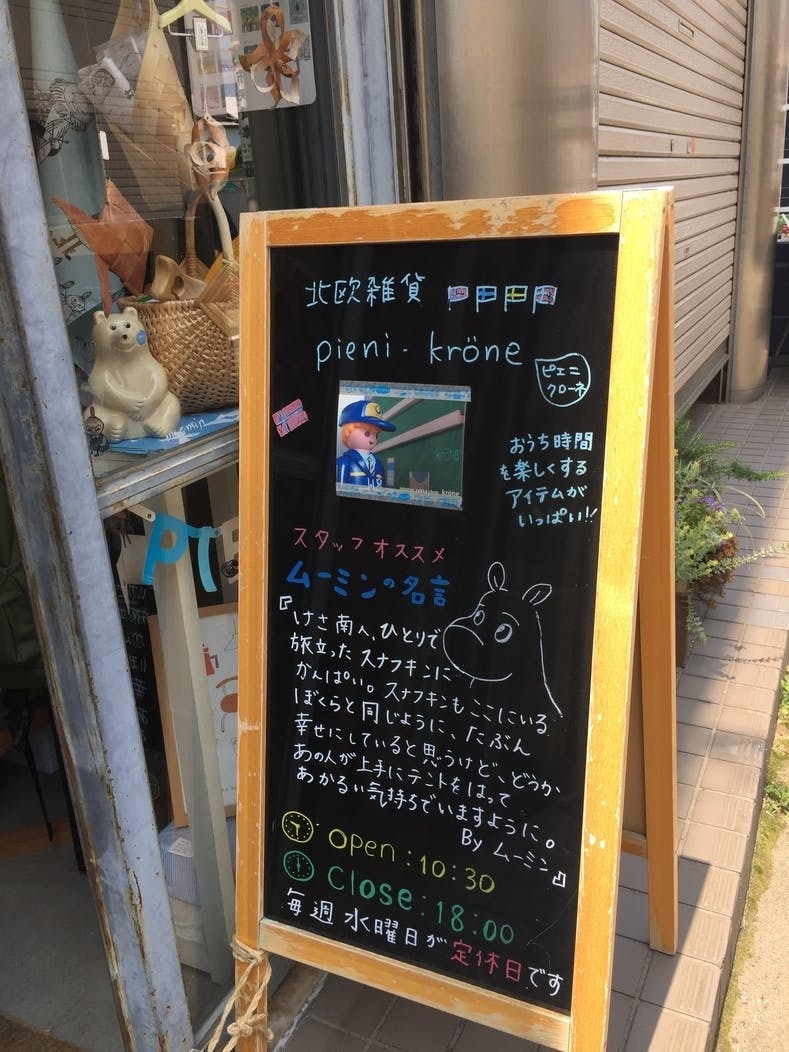 北欧雑貨
pieni - kröne
ピエニ
クローネ
おうち時間
を楽しくする
アイテムが
いっぱい!!
スタッフオススメ
ムーミンの名言
『けさ南へ、ひとりで
旅立ったスナフキンに
かんぱい。スナフキンもここにいる
ぼくらと同じように、たぶん
幸せにしていると思うけど、どうか
あの人が上手にテントをはって
あかるい気持ちでいますように。
By ムーミン』
open:10:30
close:18:00
毎週水曜日が定休日です
PIE